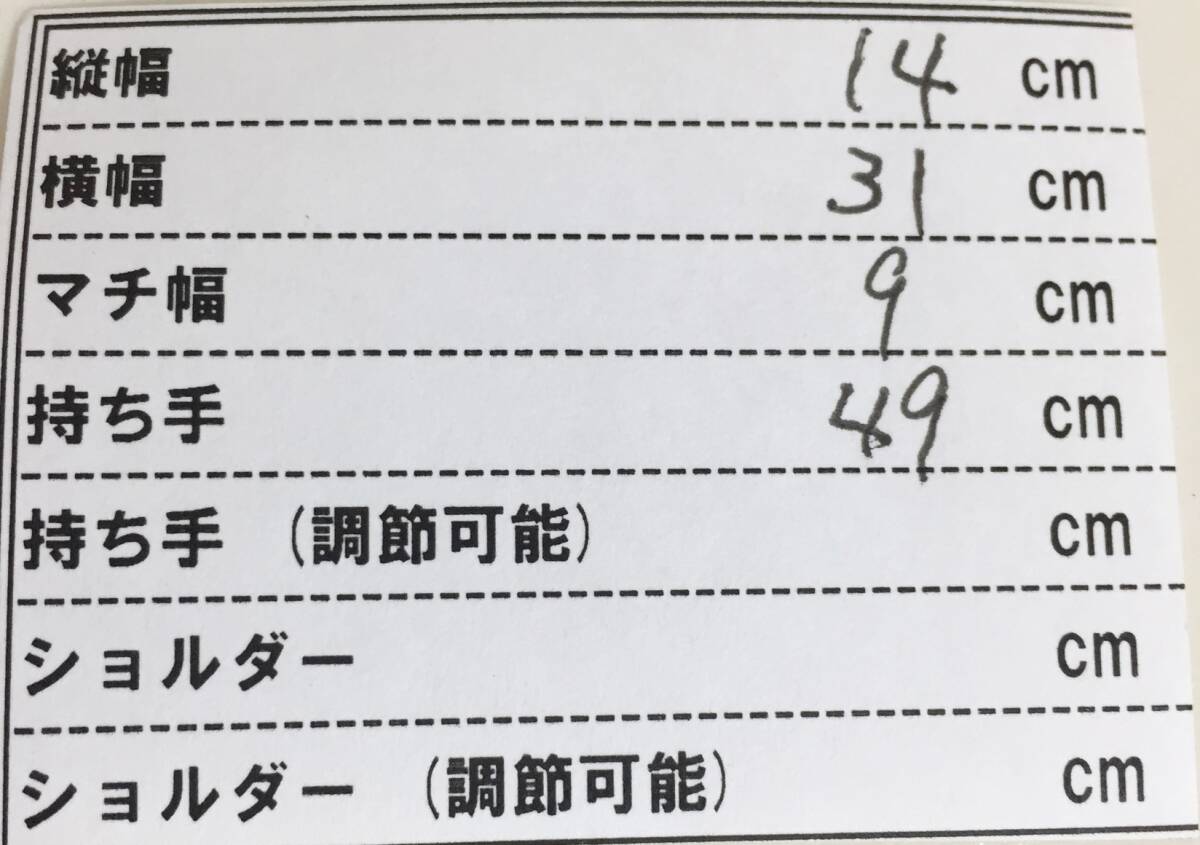 縦幅 14 cm
横幅 31 cm
マチ幅 9 cm
持ち手 49 cm
持ち手 (調節可能) cm
ショルダー cm
ショルダー (調節可能) cm